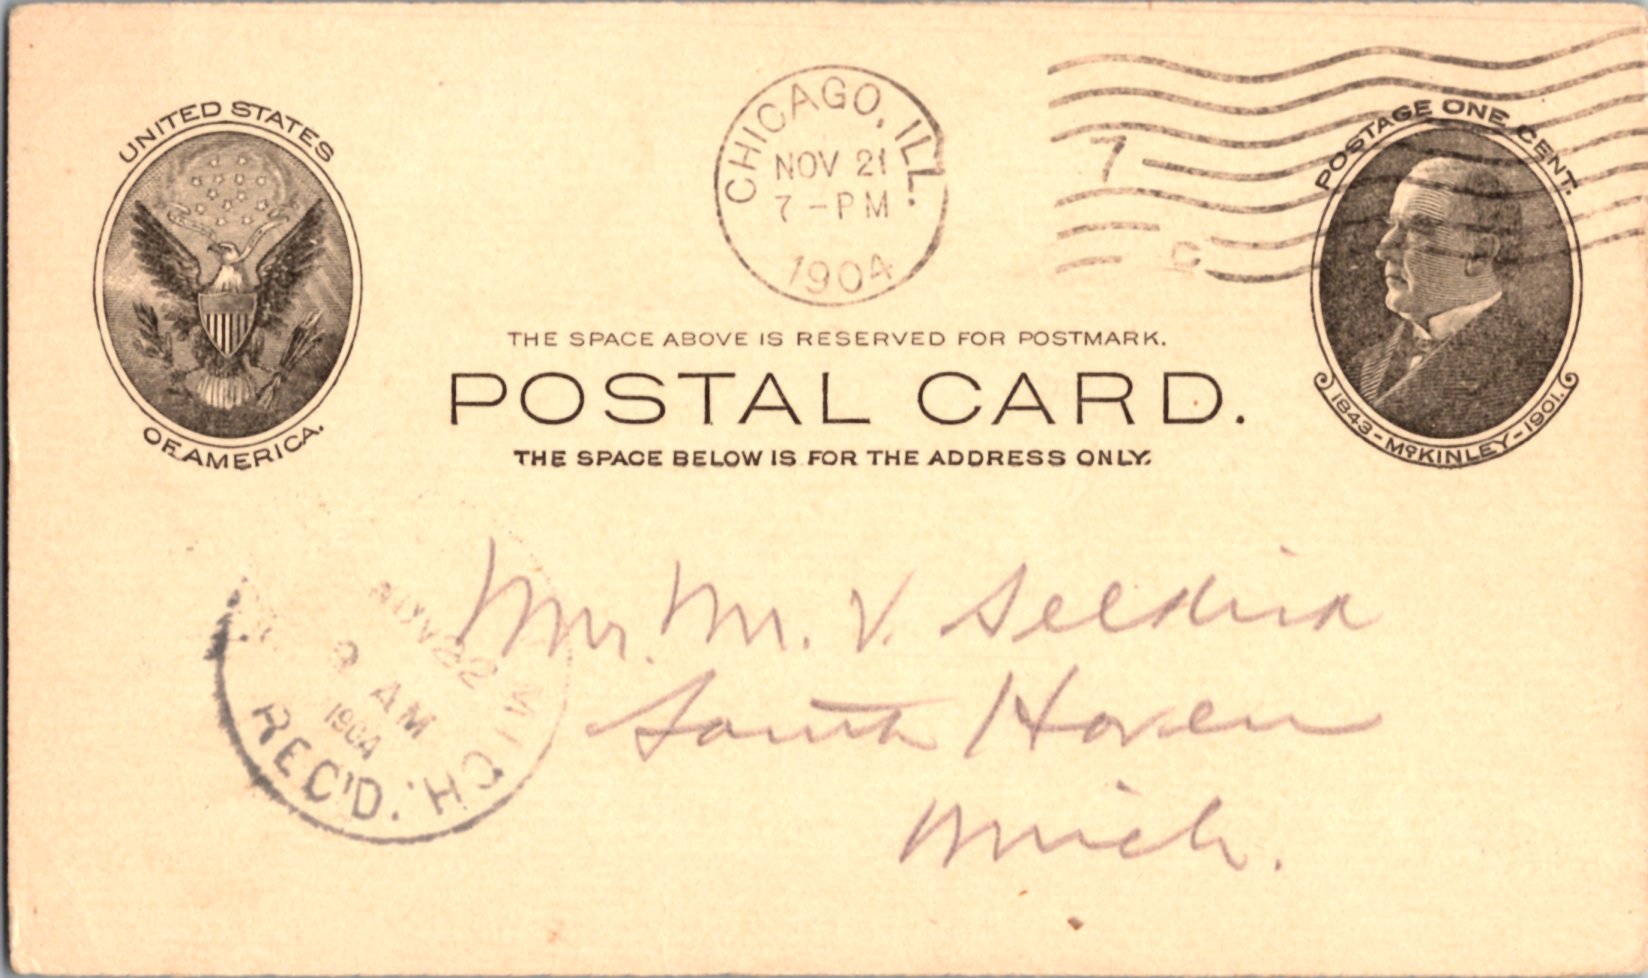 UNITED STATES
OF AMERICA.
CHICAGO, ILL.
NOV 21
7-PM
1904
7
C
POSTAGE ONE CENT.
1843-McKINLEY-1901.
THE SPACE ABOVE IS RESERVED FOR POSTMARK.
POSTAL CARD.
THE SPACE BELOW IS FOR THE ADDRESS ONLY.
Mr. M. V. Seldird
South Haven
Mich.
NOV 22
9 AM
1904
MICH.
REC'D.